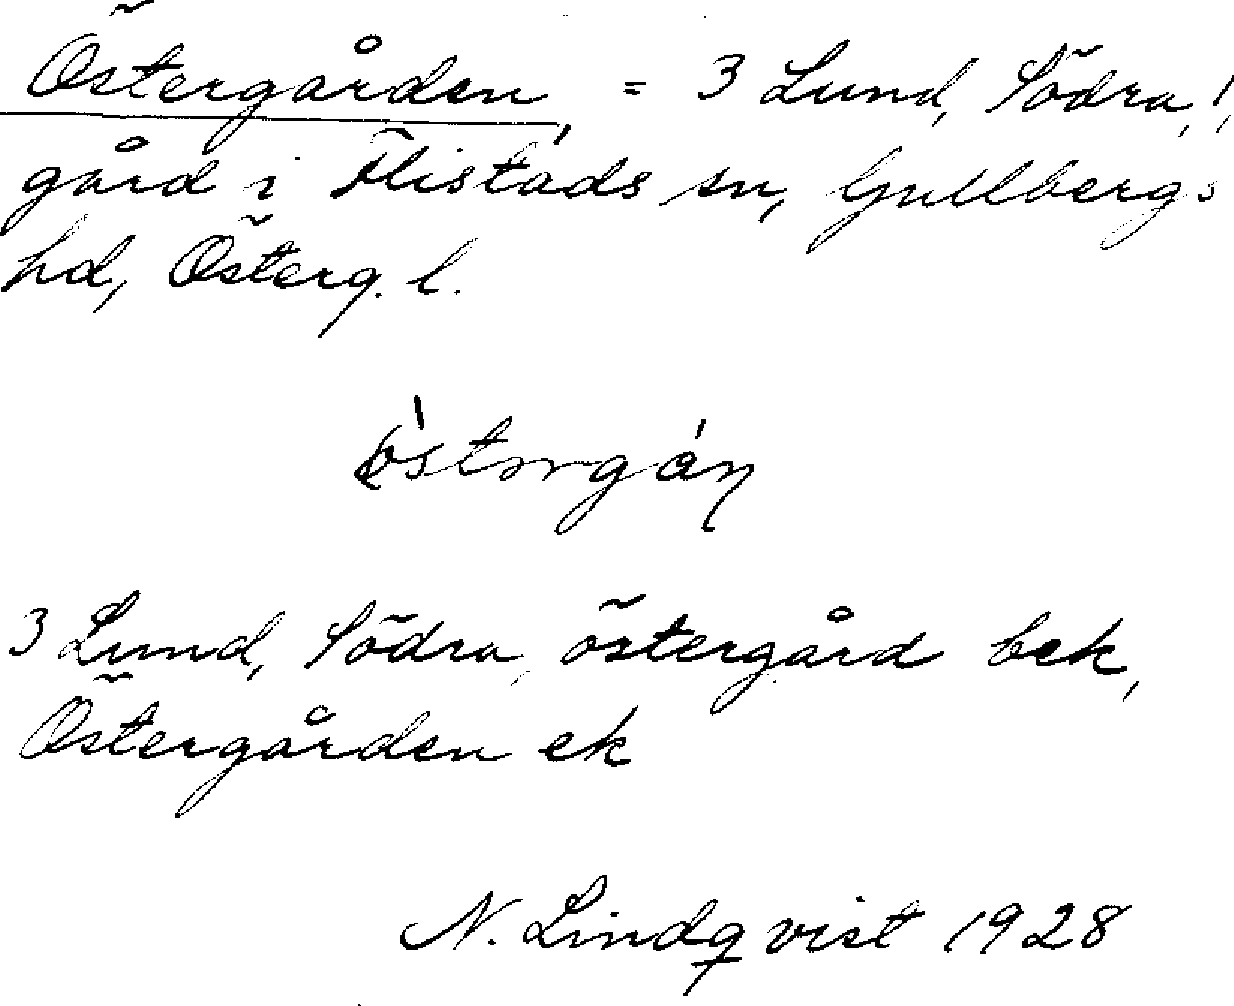 Östergården, = 3 Lund, Södra, !,
gård i Flistads sn, Gullbergs
hd, Österg. l.
3 Lund, Södra, östergård bek,
Östergården ek
N. Lindqvist 1928